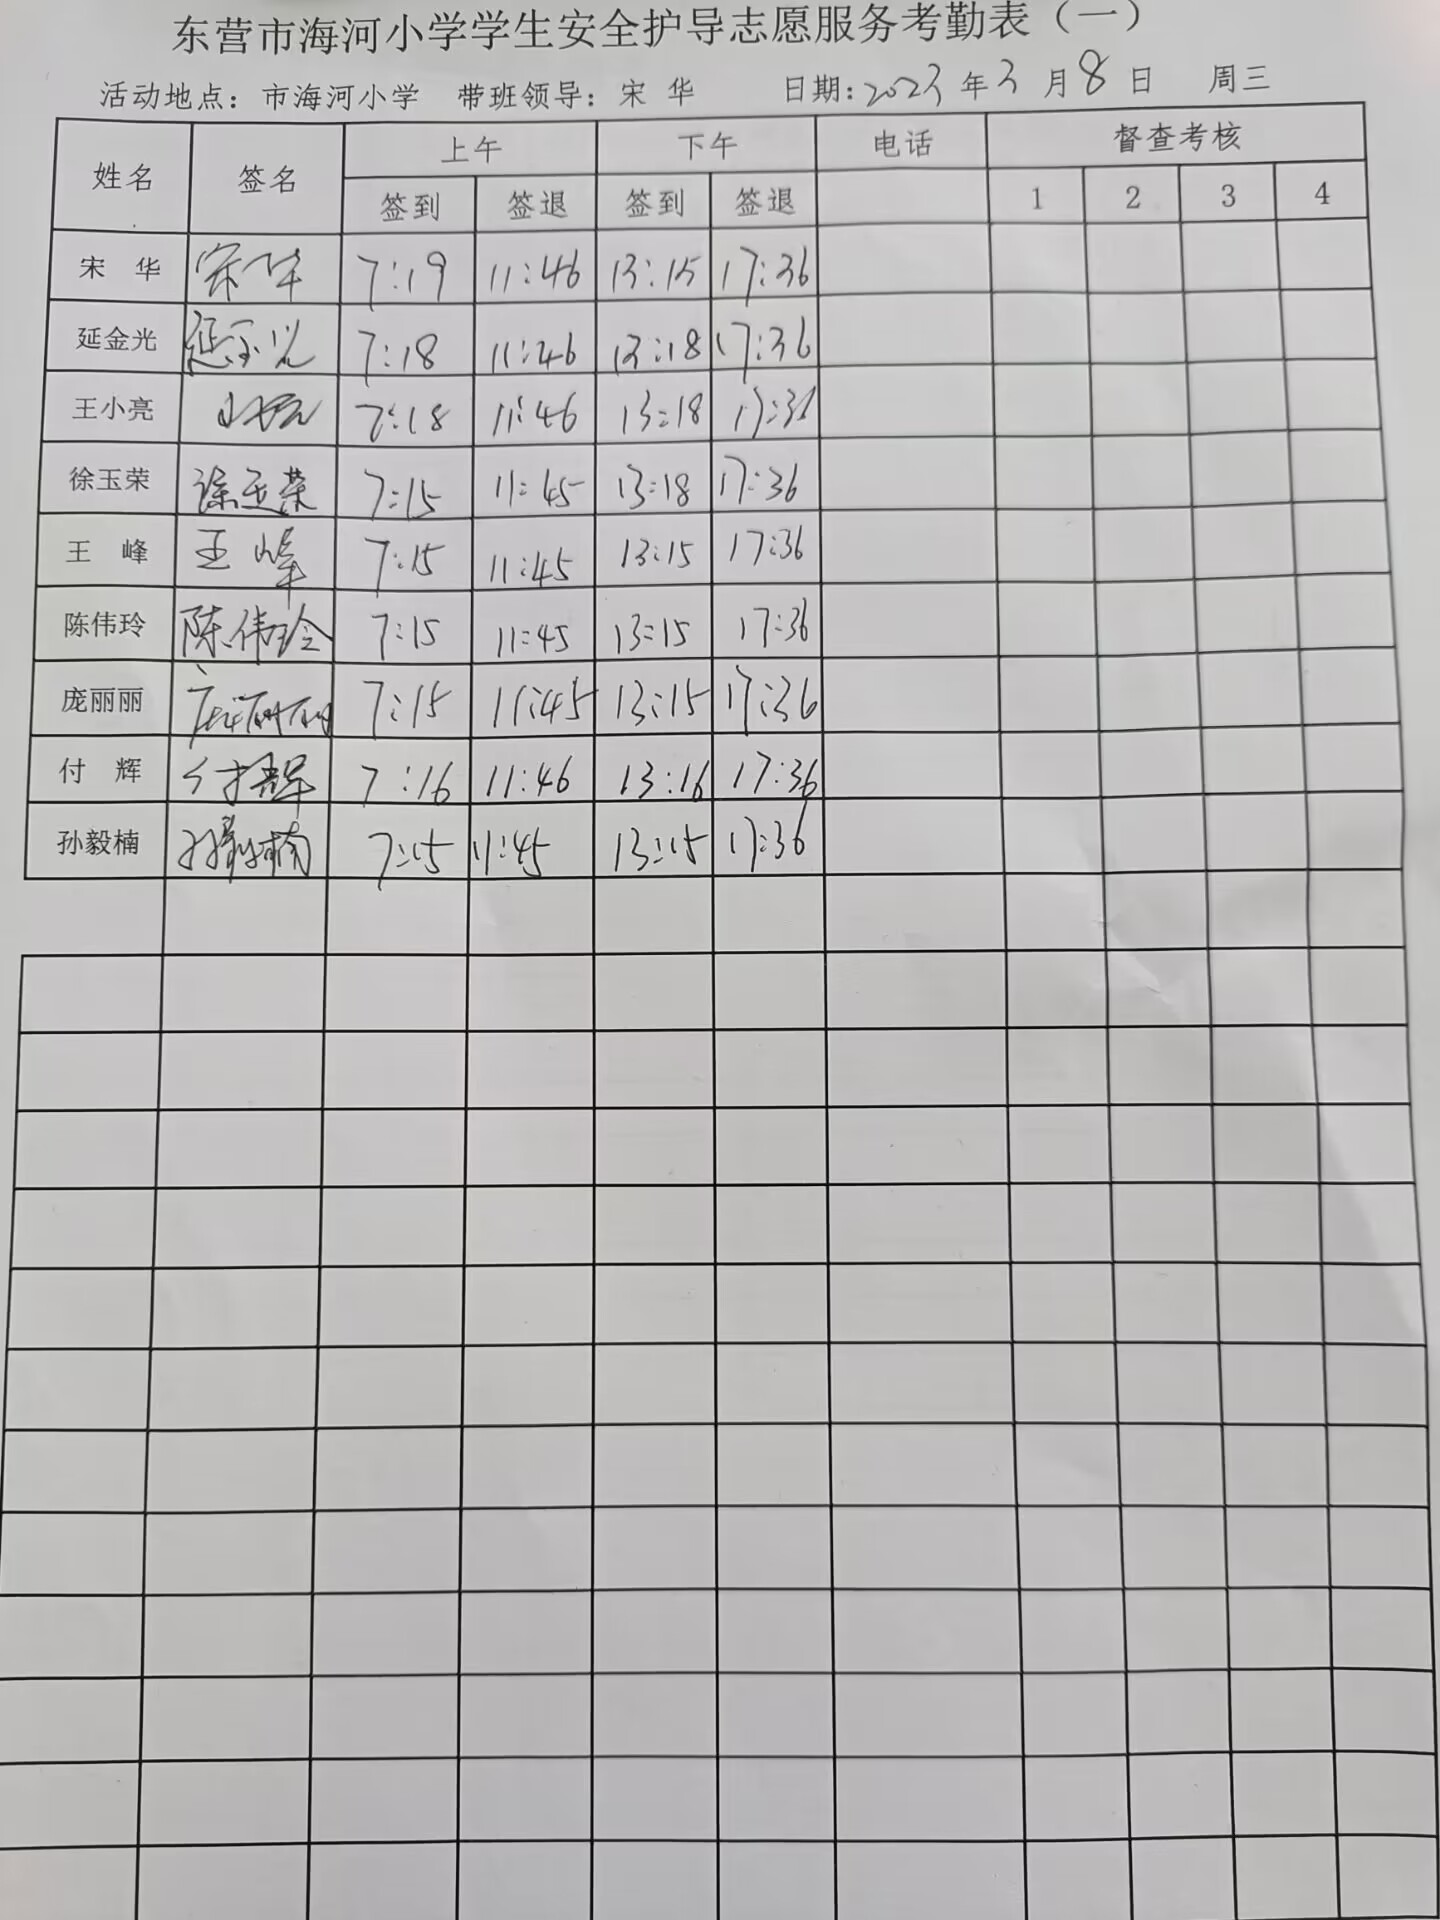 东营市海河小学学生安全护导志愿服务考勤表（一）
活动地点：市海河小学 带班领导：宋 华 日期：2023年3月8日 周三
姓名 签名 上午 下午 电话 督查考核
签到 签退 签到 签退 1 2 3 4
宋 华 宋华 7:19 11:46 13:15 17:36
延金光 延金光 7:18 11:46 13:18 17:36
王小亮 王小亮 7:18 11:46 13:18 17:36
徐玉荣 徐玉荣 7:15 11:45 13:18 17:36
王 峰 王峰 7:15 11:45 13:15 17:36
陈伟玲 陈伟玲 7:15 11:45 13:15 17:36
庞丽丽 庞丽丽 7:15 11:45 13:15 17:36
付 辉 付辉 7:16 11:46 13:16 17:36
孙毅楠 孙毅楠 7:15 11:45 13:15 17:36